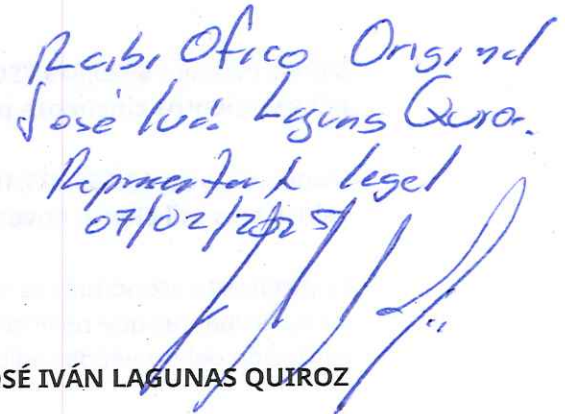 Recibi Ofico Original
José Ivan Lagunas Quiroz.
Representante legal
07/02/2025
OSÉ IVÁN LAGUNAS QUIROZ